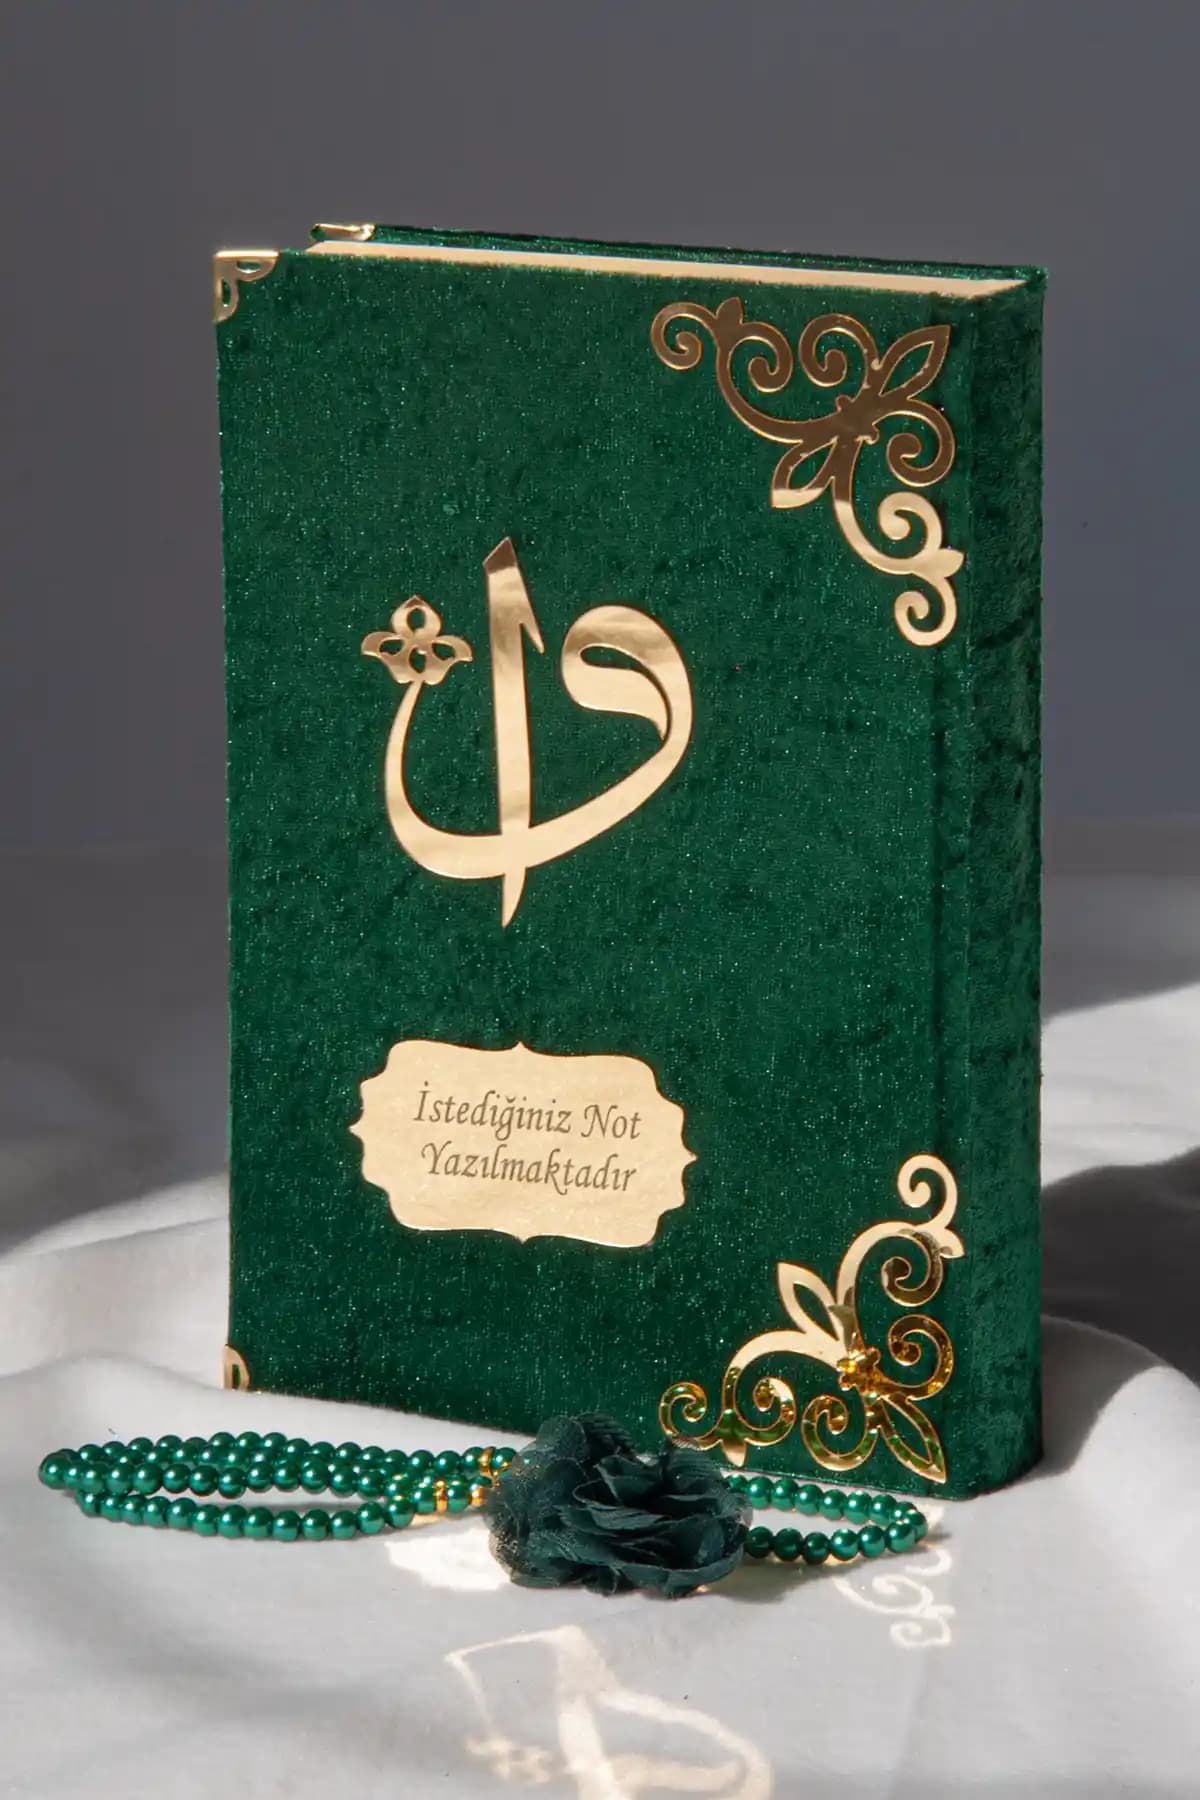 وا
İstediğiniz Not
Yazılmaktadır